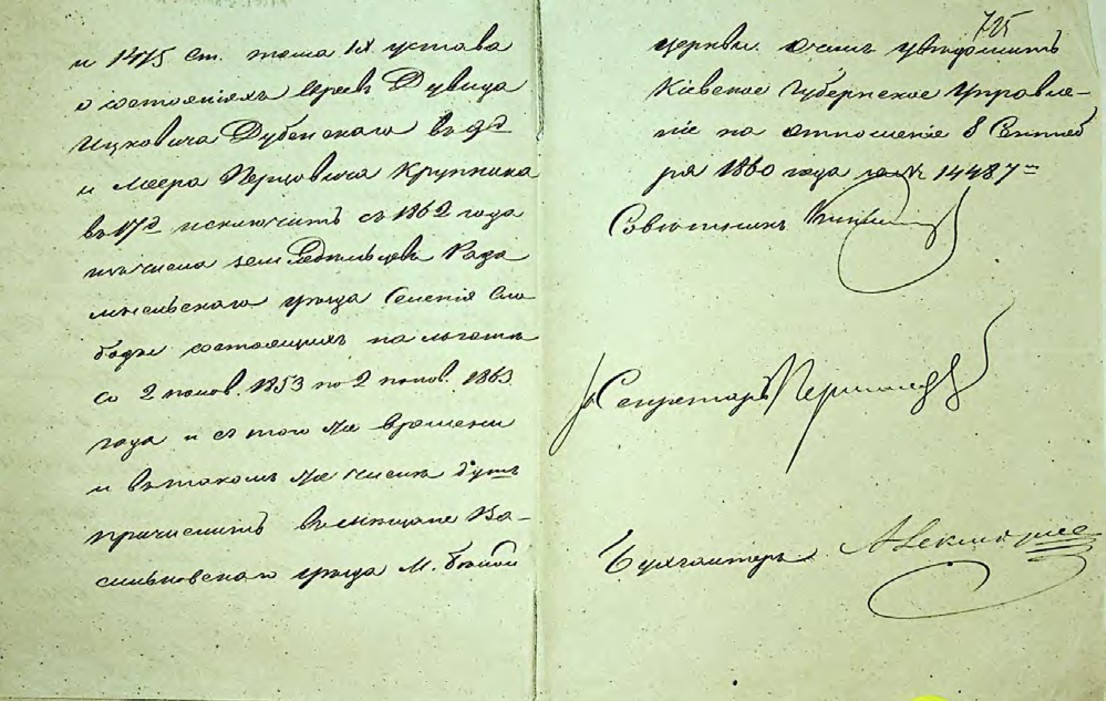 и 1475 ст. тома IX устава
о состояніяхъ Евреевъ Дувида
Ицковича Дубенскаго въ 9 д
и Меера Перцовича Крупника
въ 17 д исключить съ 1862 года
изъ числа земледѣльцевъ Радо
мысльскаго уѣзда Селенія Сло
боды состоящихъ на льготѣ
со 2 полов. 1853 по 2 полов. 1863
года и съ того же времени
и въ такомъ же числѣ душъ
причислить въ мѣщане Ва-
сильковскаго уѣзда М. Бѣлой
725
церкви. о чемъ увѣдомить
Кіевское Губернское Управле-
ніе на отношеніе 8 Сентяб
ря 1860 года за № 14487
Совѣтникъ
Секретарь
Бухгалтеръ